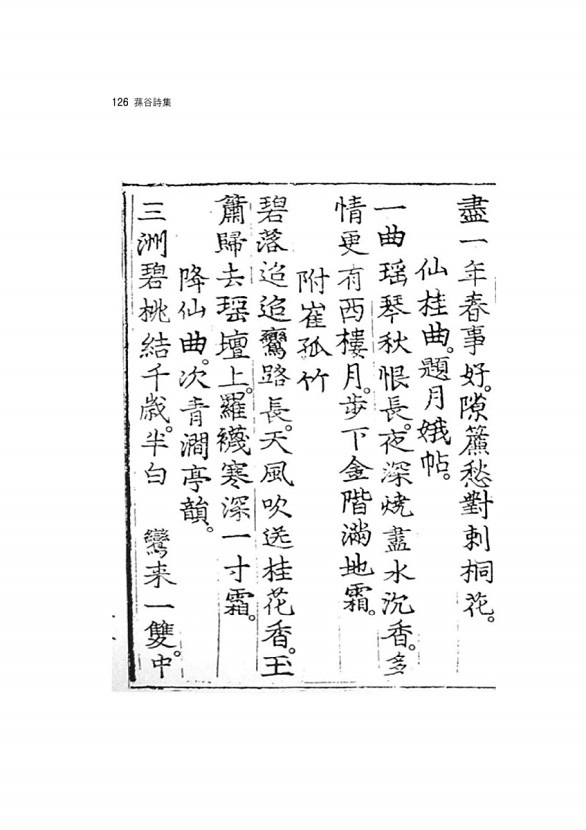 126 蓀谷詩集
盡一年春事好。隙簾愁對刺桐花。
仙桂曲。題月娥帖。
一曲瑶琴秋恨長。夜深燒盡水沉香。多
情更有西樓月。步下金階滿地霜。
附崔孤竹
碧落迢迢鸞路長。天風吹送桂花香。玉
簫歸去瑶壇上。羅襪寒深一寸霜。
降仙曲。次青澗亭韻。
三洲碧桃結千歲。半白 鸞来一雙。中